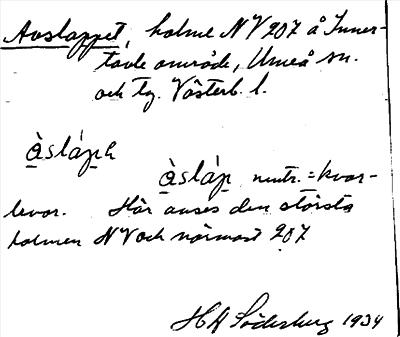 Avslappet, holme NV 207 å Inner-
tavle område, Umeå sn.
och tg. Västerb. l.
àsláph
àsláp neutr. = kvar-
levor. Här anses den största
holmen NV och närmast 207
H A Söderberg 1934